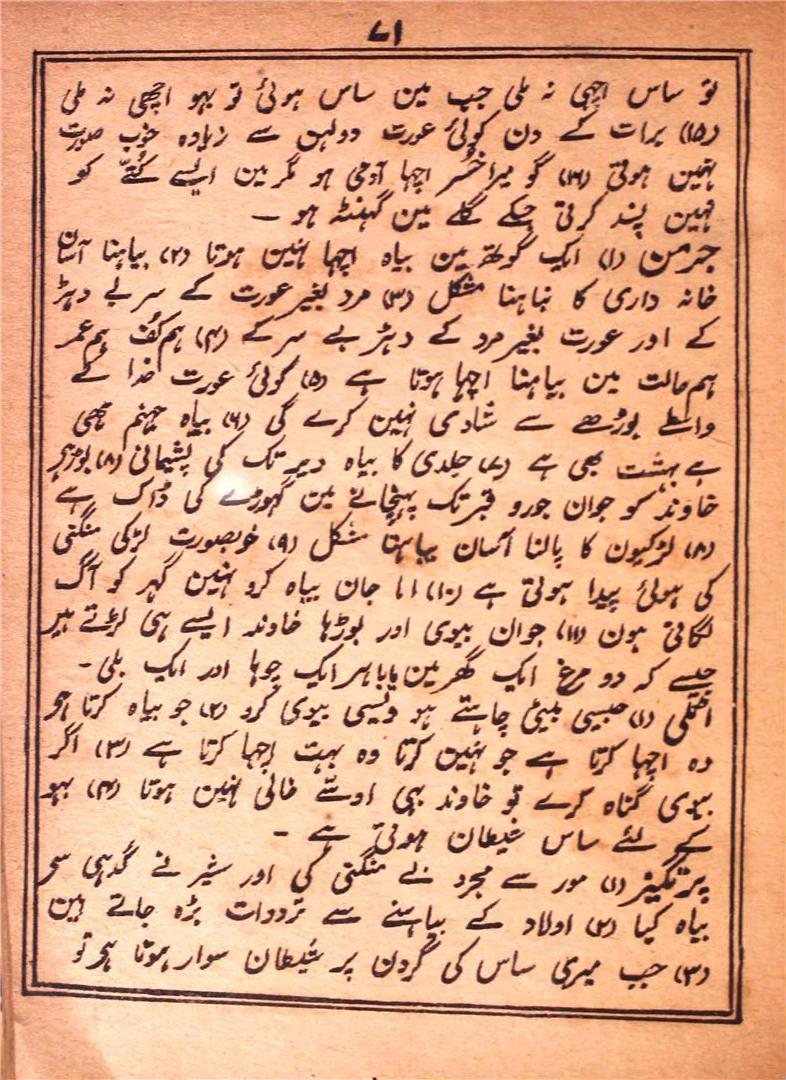 ۷۱
تو ساس اچہی نہ ملی جب مین ساس ہوئی تو بہو اچھی نہ ملی
(۱۵) برات کے دن کوئی عورت دولہن سے زیادہ خوب صورت
نہین ہوتی (۱۶) گو میرا خسر اچہا آدمی ہو مگر مین ایسے کُتّے کو
نہین پسند کرتی جسکے گلے مین گہنٹہ ہو ۔
جرمن (۱) ایک گوتھ مین بیاہ اچہا نہین ہوتا (۲) بیاہنا آسان
خانہ داری کا نباہنا مشکل (۳) مرد بغیر عورت کے سر بے دہڑ
کے اور عورت بغیر مرد کے دہڑ بے سر کے (۴) ہم کُف ہم عمر
ہم حالت مین بیاہنا اچہا ہوتا ہے (۵) کوئی عورت خدا کے
واسطے بوڑھے سے شادی نہین کرے گی (۶) بیاہ جہنم بھی
ہے بہشت بھی ہے (۷) جلدی کا بیاہ دیر تک کی پشیمانی (۸) بوڑہے
خاوند کو جوان جورو قبر تک پہنچانے مین گہوڑے کی ڈاک ہے
(۸) لڑکیون کا پالنا آسان بیاہنا مشکل (۹) خوبصورت لڑکی منگنی
کی ہوئی پیدا ہوتی ہے (۱۰) اما جان بیاہ کرو نہین گہر کو آگ
لگاتی ہون (۱۱) جوان بیوی اور بوڑہا خاوند ایسے ہی لڑتے ہیں
جیسے کہ دو مرغ ایک گھر مین یا باہر ایک چوہا اور ایک بلی ۔
اٹلی (۱) جیسی بیٹی چاہتے ہو ویسی بیوی کرو (۲) جو بیاہ کرتا ہو
وہ اچہا کرتا ہے جو نہین کرتا وہ بہت اچہا کرتا ہے (۳) اگر
بیوی گناہ کرے تو خاوند بہی اوسّے خالی نہین ہوتا (۴) بہو
کے لئے ساس شیطان ہوتی ہے ۔
پرتگیز (۱) مور سے مجرد نے منگنی کی اور شیر نے گدہی سے
بیاہ کیا (۲) اولاد کے بیاہنے سے ترددات بڑہ جاتے ہین
(۳) جب میری ساس کی گردن پر شیطان سوار ہوتا ہی تو